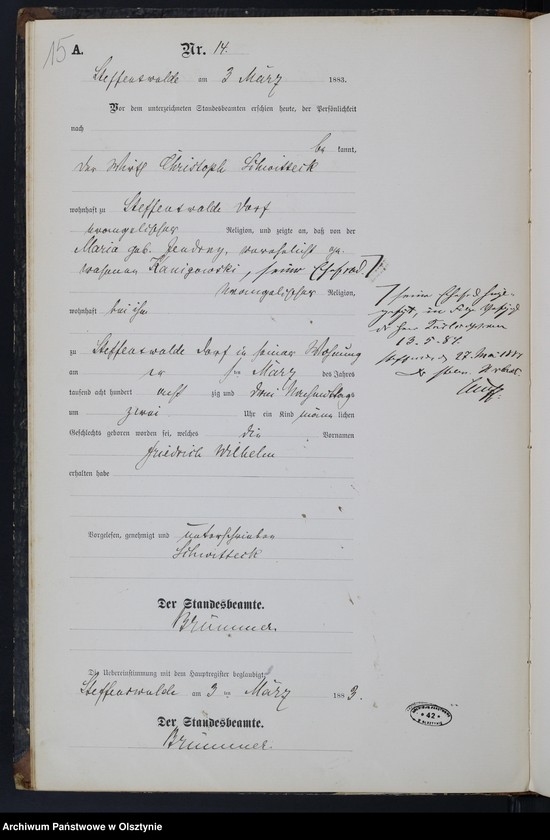 15 A. Nr. 14.
Steffenswalde am 3 März 1883.
Vor dem unterzeichneten Standesbeamten erschien heute, der Persönlichkeit
nach
be kannt,
der Wirth Christoph Schwitteck
wohnhaft zu Steffenswalde Dorf
evangelischer Religion, und zeigte an, daß von der
Maria geb. verehelicht ge-
wesenen Kanigowski, seiner Ehefrau
evangelischer Religion,
wohnhaft bei ihm
zu Steffenswalde Dorf in seiner Wohnung
am März des Jahres
tausend acht hundert acht zig und drei Nachmittags
um zwei Uhr ein Kind männ lichen
Geschlechts geboren worden sei, welches die Vornamen
Friedrich Wilhelm
erhalten habe
Vorgelesen, genehmigt und unterschrieben
Schwitteck
Der Standesbeamte.
Brümmer
Die Uebereinstimmung mit dem Hauptregister beglaubigt
Steffenswalde am 3 ten März 188 3.
Der Standesbeamte.
Brümmer
seine Ehefrau
13. 5. 84.
27. Mai
42
Archiwum Państwowe w Olsztynie